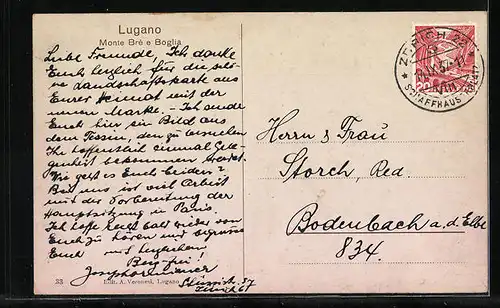 Lugano
Monte Brè e Boglia
Liebe Freunde, Ich danke
Euch herzlich für die schöne
Landschaftskarte aus
Eurer Heimat mit der
neuen Marke. - Ich sende
Euch hier ein Bild aus
dem Tessin, den zu besuchen
Ihr hoffentlich einmal Gele-
genheit bekommen werdet.
Wie geht es Euch beiden?
Bei uns ist viel Arbeit
mit der Vorbereitung der
Hauptsitzung in Paris
Ich hoffe recht bald wieder von
Euch zu hören und grüsse
Euch mit herzlichem
Berg frei!
33 Edit. A. Veronesi, Lugano
ZÜRICH 22
SCHAFFHAUS
Herrn & Frau
Storch, Red.
Bodenbach a. d. Elbe
834.